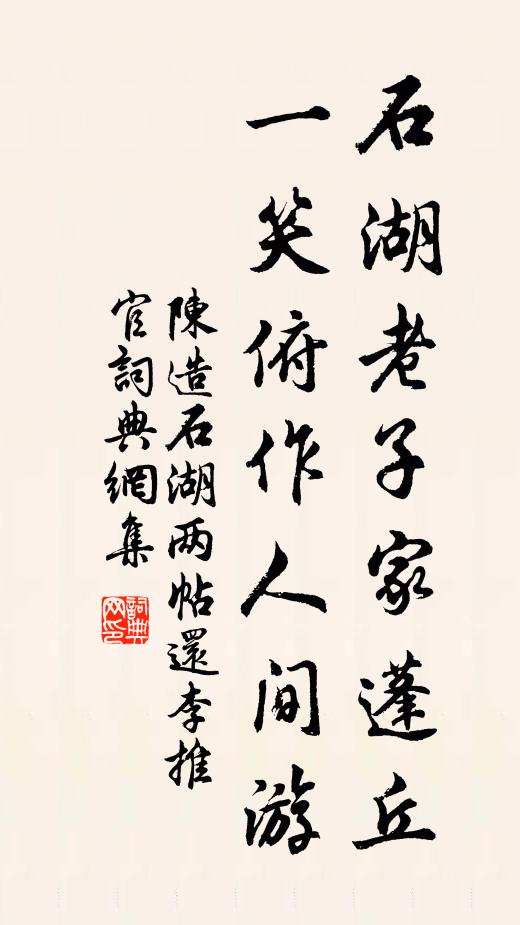 石湖老子家蓬丘
一笑俯作人间游
陳造石湖两帖還李推
官詞典網集
詞典
网印